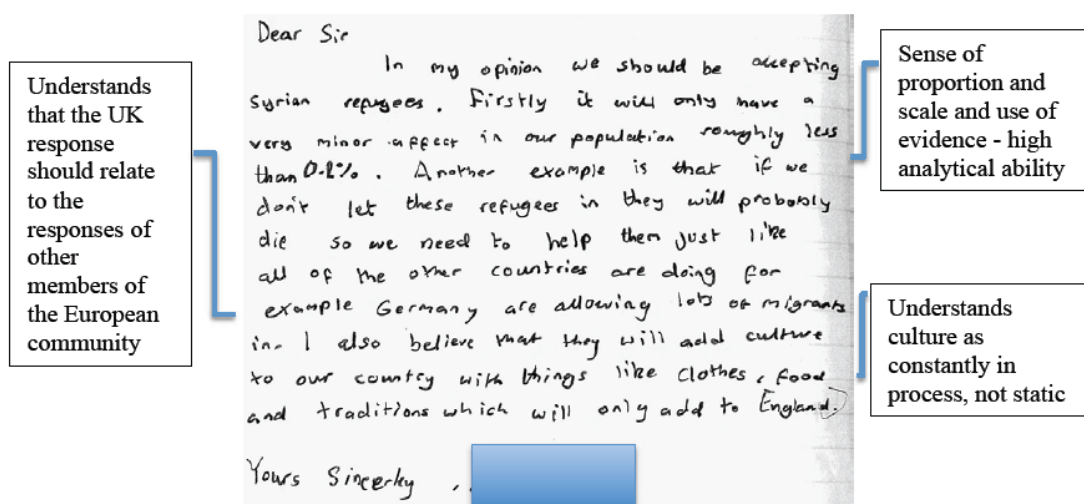 Understands
that the UK
response
should relate
to the
responses of
other
members of
the European
community
Dear Sir
In my opinion we should be accepting
Syrian refugees. Firstly it will only have a
very minor affect in our population roughly less
than 0.1%. Another example is that if we
don't let these refugees in they will probably
die so we need to help them just like
all of the other countries are doing for
example Germany are allowing lots of migrants
in. I also believe that they will add culture
to our country with things like clothes, food
and traditions which will only add to England.
Yours Sincerky
Sense of
proportion and
scale and use of
evidence - high
analytical ability
Understands
culture as
constantly in
process, not static